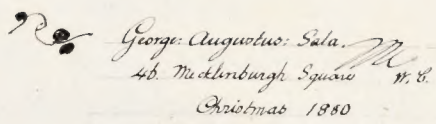 George: Augustus: Sala.
46. Mecklenburgh Square W. C.
Christmas 1880